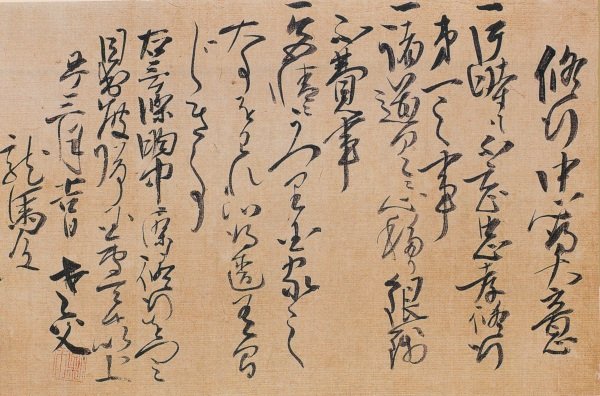 修行中心得大意
一片時も不忘忠孝修行
第一之事
一諸道具ニ心移り銀銭
不費事
一色情ニうつり国家之
大事をわれ心得違有間
じき事
右三ヶ條胸中ニ染修行をつミ
目出度帰国専一ニ候以上
丑ノ三月吉日 老父
龍馬殿